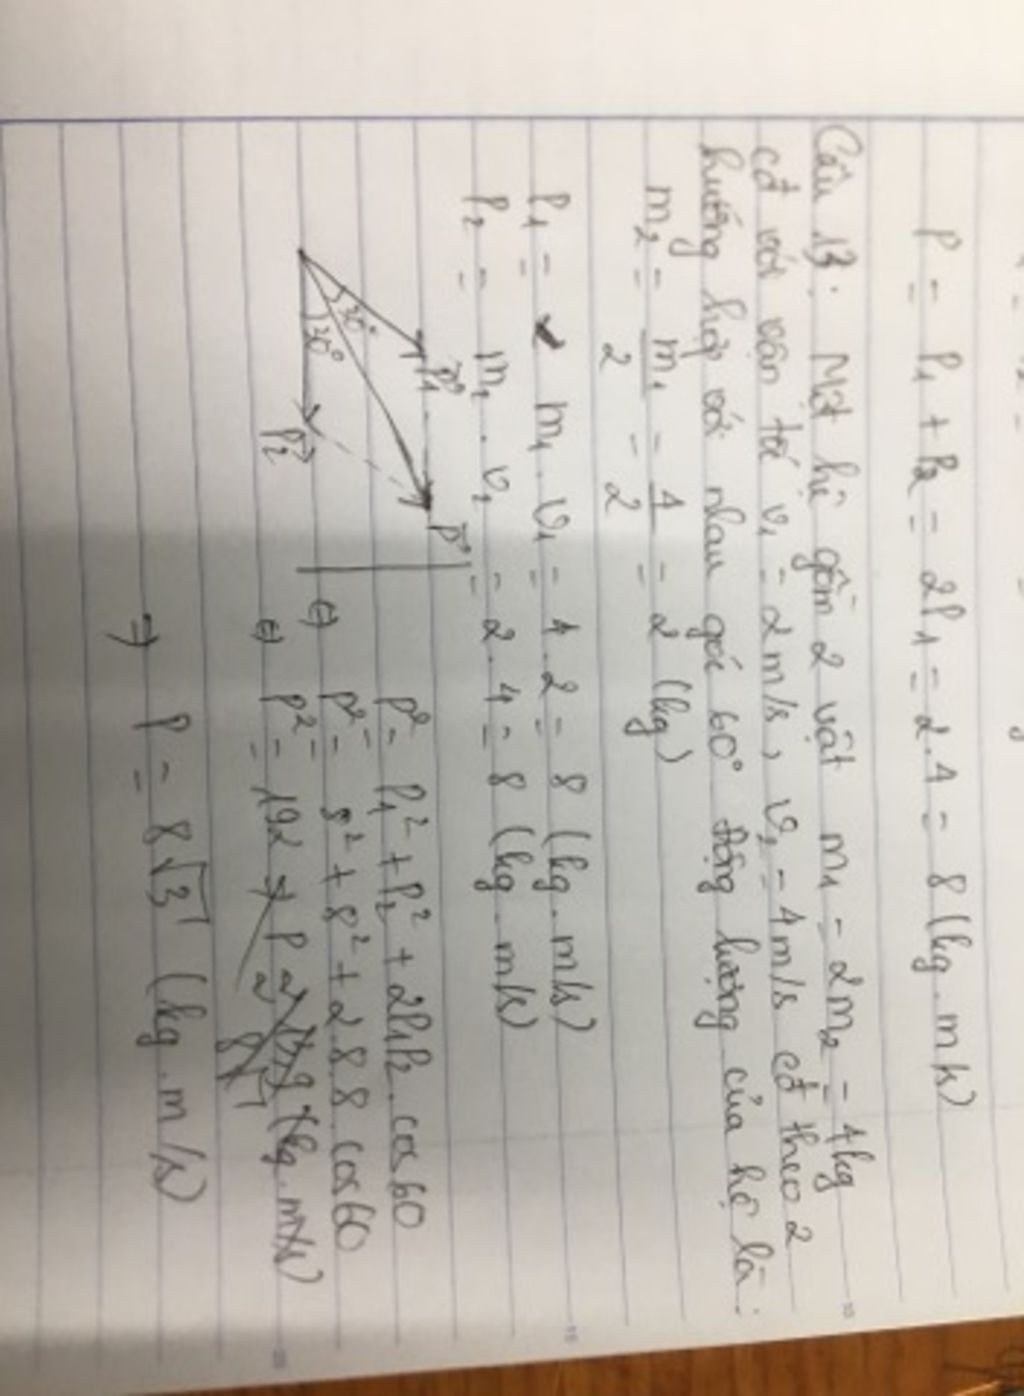 P = P₁ + P₂ = 2P₁ = 2.4 = 8 (kg.m/s)
Câu 13: Một hệ gồm 2 vật m₁ = 2m₂ = 4kg
cđ với vận tốc v₁ = 2m/s, v₂ = 4m/s cđ theo 2
hướng hợp với nhau góc 60° động lượng của hệ là:
m₂ = m₁/2 = 4/2 = 2 (kg)
P₁ = m₁.v₁ = 4.2 = 8 (kg.m/s)
P₂ = m₂.v₂ = 2.4 = 8 (kg.m/s)
30°
30°
P₁
P₂
P
P² = P₁² + P₂² + 2P₁P₂.cos60
⇔ P² = 8² + 8² + 2.8.8.cos60
⇔ P² = 192
⇒ P = 8√3 (kg.m/s)